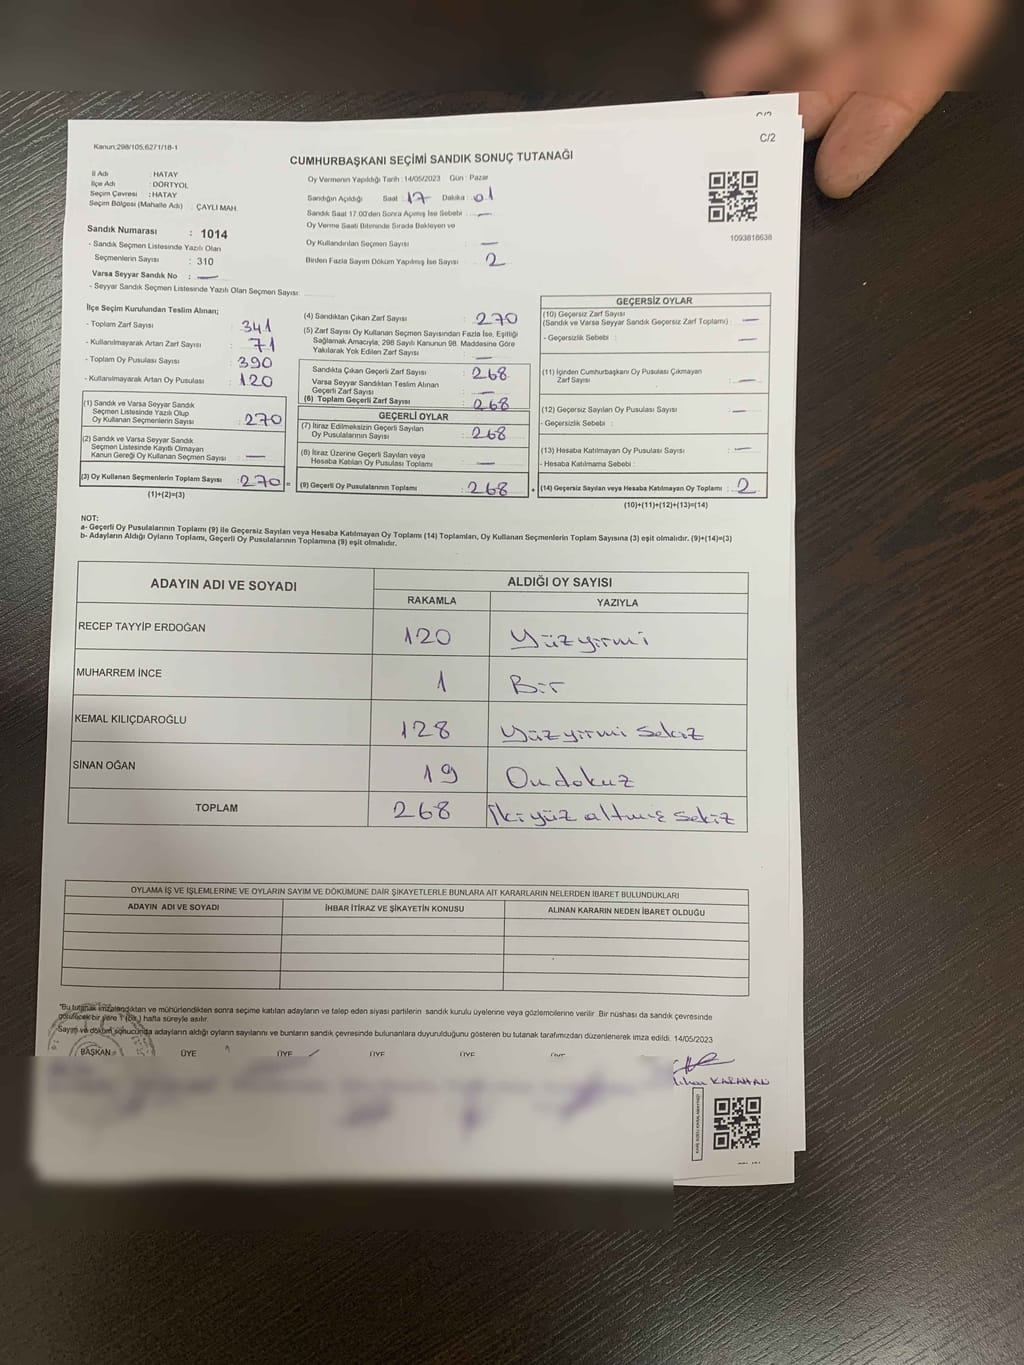 C/2
Kanun:298/105,6271/18-1
CUMHURBAŞKANI SEÇİMİ SANDIK SONUÇ TUTANAĞI
İl Adı : HATAY
İlçe Adı : DÖRTYOL
Seçim Çevresi : HATAY
Seçim Bölgesi (Mahalle Adı) : ÇAYLI MAH.
Sandık Numarası : 1014
- Sandık Seçmen Listesinde Yazılı Olan
Seçmenlerin Sayısı : 310
Varsa Seyyar Sandık No : —
- Seyyar Sandık Seçmen Listesinde Yazılı Olan Seçmen Sayısı:
Oy Vermenin Yapıldığı Tarih : 14/05/2023 Gün : Pazar
Sandığın Açıldığı Saat : 17 Dakika : 01
Sandık Saat 17.00'den Sonra Açılmış İse Sebebi : —
Oy Verme Saati Bitiminde Sırada Bekleyen ve
Oy Kullandırılan Seçmen Sayısı : —
Birden Fazla Sayım Döküm Yapılmış İse Sayısı : 2
1093818638
İlçe Seçim Kurulundan Teslim Alınan;
- Toplam Zarf Sayısı : 341
- Kullanılmayarak Artan Zarf Sayısı : 71
- Toplam Oy Pusulası Sayısı : 390
- Kullanılmayarak Artan Oy Pusulası : 120
(1) Sandık ve Varsa Seyyar Sandık
Seçmen Listesinde Yazılı Olup
Oy Kullanan Seçmenlerin Sayısı : 270
(2) Sandık ve Varsa Seyyar Sandık
Seçmen Listesinde Kayıtlı Olmayan
Kanun Gereği Oy Kullanan Seçmen Sayısı : —
(3) Oy Kullanan Seçmenlerin Toplam Sayısı : 270 =
(1)+(2)=(3)
(4) Sandıktan Çıkan Zarf Sayısı : 270
(5) Zarf Sayısı Oy Kullanan Seçmen Sayısından Fazla İse, Eşitliği
Sağlamak Amacıyla; 298 Sayılı Kanunun 98. Maddesine Göre
Yakılarak Yok Edilen Zarf Sayısı : —
Sandıkta Çıkan Geçerli Zarf Sayısı : 268
Varsa Seyyar Sandıktan Teslim Alınan
Geçerli Zarf Sayısı : —
(6) Toplam Geçerli Zarf Sayısı : 268
GEÇERLİ OYLAR
(7) İtiraz Edilmeksizin Geçerli Sayılan
Oy Pusulalarının Sayısı : 268
(8) İtiraz Üzerine Geçerli Sayılan veya
Hesaba Katılan Oy Pusulası Toplamı : —
(9) Geçerli Oy Pusulalarının Toplamı : 268 +
GEÇERSİZ OYLAR
(10) Geçersiz Zarf Sayısı
(Sandık ve Varsa Seyyar Sandık Geçersiz Zarf Toplamı) : —
- Geçersizlik Sebebi : —
(11) İçinden Cumhurbaşkanı Oy Pusulası Çıkmayan
Zarf Sayısı : —
(12) Geçersiz Sayılan Oy Pusulası Sayısı : —
- Geçersizlik Sebebi :
(13) Hesaba Katılmayan Oy Pusulası Sayısı : —
- Hesaba Katılmama Sebebi :
(14) Geçersiz Sayılan veya Hesaba Katılmayan Oy Toplamı : 2
(10)+(11)+(12)+(13)=(14)
NOT:
a- Geçerli Oy Pusulalarının Toplamı (9) ile Geçersiz Sayılan veya Hesaba Katılmayan Oy Toplamı (14) Toplamları, Oy Kullanan Seçmenlerin Toplam Sayısına (3) eşit olmalıdır. (9)+(14)=(3)
b- Adayların Aldığı Oyların Toplamı, Geçerli Oy Pusulalarının Toplamına (9) eşit olmalıdır.
ADAYIN ADI VE SOYADI ALDIĞI OY SAYISI
RAKAMLA YAZIYLA
RECEP TAYYİP ERDOĞAN 120 Yüzyirmi
MUHARREM İNCE 1 Bir
KEMAL KILIÇDAROĞLU 128 Yüzyirmi Sekiz
SİNAN OĞAN 19 Ondokuz
TOPLAM 268 İkiyüz altmış Sekiz
OYLAMA İŞ VE İŞLEMLERİNE VE OYLARIN SAYIM VE DÖKÜMÜNE DAİR ŞİKAYETLERLE BUNLARA AİT KARARLARIN NELERDEN İBARET BULUNDUKLARI
ADAYIN ADI VE SOYADI İHBAR İTİRAZ VE ŞİKAYETİN KONUSU ALINAN KARARIN NEDEN İBARET OLDUĞU
"Bu tutanak imzalandıktan ve mühürlendikten sonra seçime katılan adayların ve talep eden siyasi partilerin sandık kurulu üyelerine veya gözlemcilerine verilir. Bir nüshası da sandık çevresinde
görülecek bir yere 1 (bir) hafta süreyle asılır.
Sayım ve döküm sonucunda adayların aldığı oyların sayılarını ve bunların sandık çevresinde bulunanlara duyurulduğunu gösteren bu tutanak tarafımızdan düzenlenerek imza edildi. 14/05/2023
BAŞKAN ÜYE ÜYE ÜYE ÜYE
KARAHAN